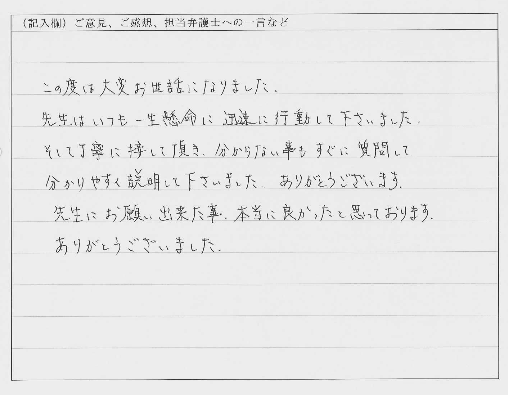 (記入欄) ご意見、ご感想、担当弁護士への一言など
この度は大変お世話になりました.
先生はいつも一生懸命に迅速に行動して下さいました.
そして丁寧に接して頂き、分からない事もすぐに質問して
分かりやすく説明して下さいました ありがとうございます.
先生にお願い出来た事、本当に良かったと思っております.
ありがとうございました.